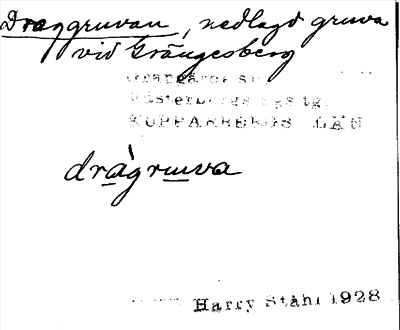 Draggruvan, nedlagd gruva
vid Grängesberg
Grangärde sn
Västerbergs lags tg.
KOPPARBERGS LÄN
dràgruva
Harry Ståhl 1928